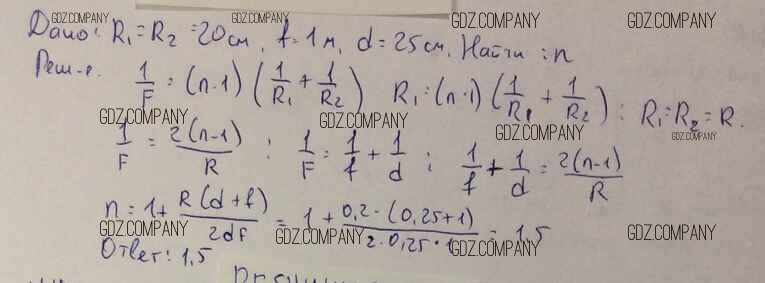 GDZ.COMPANY GDZ.COMPANY GDZ.COMPANY
Дано: R₁ = R₂ = 20 см, f = 1 м, d = 25 см. Найти: n
GDZ.COMPANY
Реш-е. 1/F = (n-1) (1/R₁ + 1/R₂) R₁ = (n-1) (1/R₁ + 1/R₂) : R₁ = R₂ = R.
GDZ.COMPANY GDZ.COMPANY GDZ.COMPANY GDZ.COMPANY
1/F = 2(n-1)/R ; 1/F = 1/f + 1/d ; 1/f + 1/d = 2(n-1)/R
n = 1 + R(d+f)/2df = 1 + 0,2·(0,25+1)/2·0,25·1 = 1,5
GDZ.COMPANY GDZ.COMPANY GDZ.COMPANY GDZ.COMPANY
Ответ: 1,5